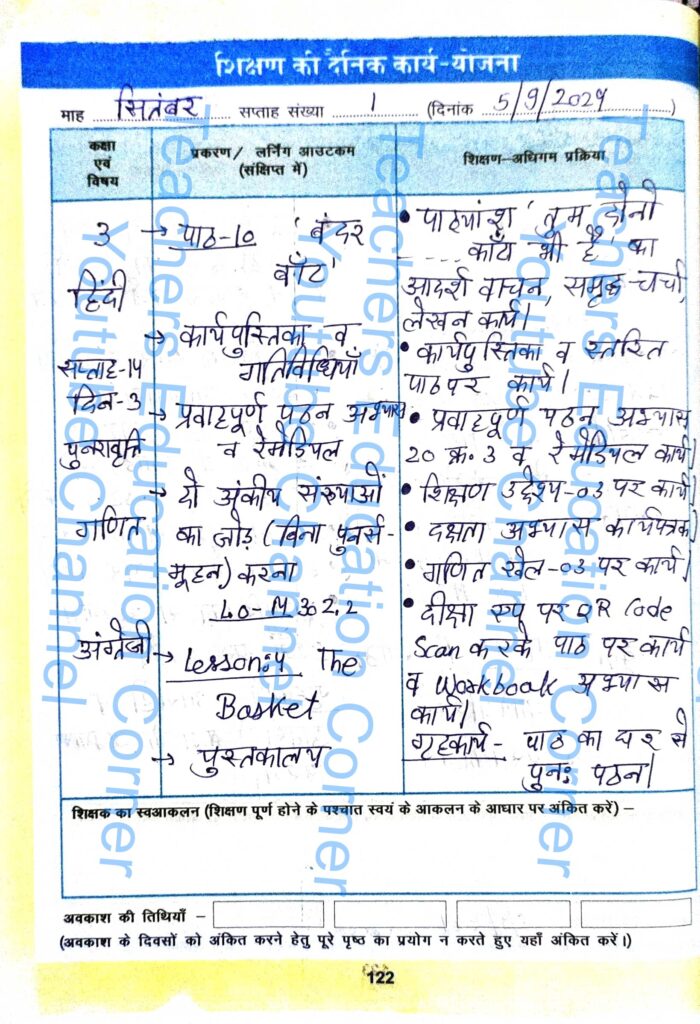 शिक्षण की दैनिक कार्य-योजना
माह सितंबर सप्ताह संख्या 1 (दिनांक 5/9/2024)
कक्षा एवं विषय
प्रकरण/ लर्निंग आउटकम (संक्षिप्त में)
शिक्षण-अधिगम प्रक्रिया
3
हिंदी
सप्ताह-14
दिन-3
पुनरावृत्ति
गणित
अंग्रेजी
→ पाठ-10 'बंदर
बाँट'
→ कार्यपुस्तिका व
गतिविधियाँ
→ प्रवाहपूर्ण पठन अभ्यास
व रेमेडियल
→ दो अंकीय संख्याओं
का जोड़ (बिना पुनर्स-
मूहन) करना
LO-M 302.2
→ Lesson:4 The
Basket
→ पुस्तकालय
• पाठ्यांश 'तुम दोनो
.... काँटा भी है' का
आदर्श वाचन, समूह-चर्चा,
लेखन कार्य।
• कार्यपुस्तिका व स्तरित
पाठ पर कार्य।
• प्रवाहपूर्ण पठन अभ्यास
20 क्र. 3 व रेमेडियल कार्य।
• शिक्षण उद्देश्य-03 पर कार्य।
• दक्षता अभ्यास कार्यपत्रक
• गणित खेल-03 पर कार्य।
• दीक्षा एप पर QR Code
Scan करके पाठ पर कार्य
व Workbook अभ्यास
कार्य।
गृहकार्य- पाठ का घर से
पुनः पठन।
शिक्षक का स्वआकलन (शिक्षण पूर्ण होने के पश्चात स्वयं के आकलन के आधार पर अंकित करें) –
अवकाश की तिथियाँ –
(अवकाश के दिवसों को अंकित करने हेतु पूरे पृष्ठ का प्रयोग न करते हुए यहाँ अंकित करें।)
122
Teachers Education Corner
Youtube Channel
Teachers Education Corner
Youtube Channel
Teachers Education Corner
Youtube Channel